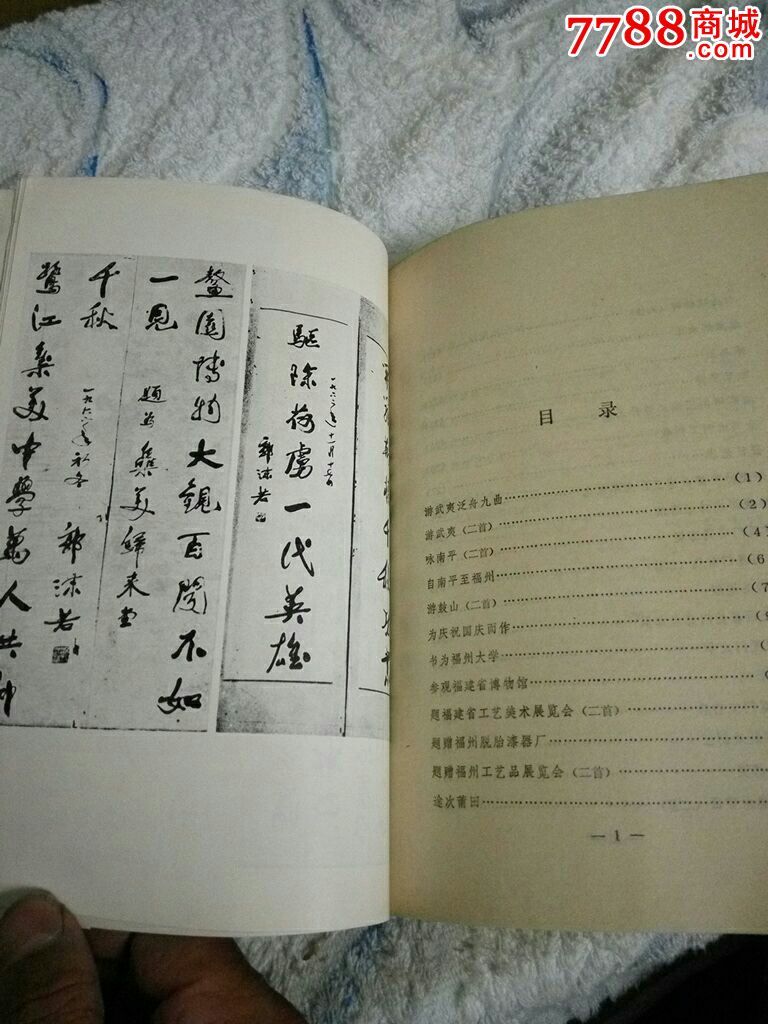 7788商城
.com
驱除荷虏一代英雄
郭沫若
鳌园博物大观百闻不如
一见
题为集美归来堂
千秋
郭沫若
鹭江集美中学万人共仰
目录
游武夷泛舟九曲……(1)
游武夷(二首)……(2)
咏南平(二首)……(4)
自南平至福州……(6
游鼓山(二首)……(7
为庆祝国庆而作……
书为福州大学……
参观福建省博物馆……
题福建省工艺美术展览会(二首)……
题赠福州脱胎漆器厂……
题赠福州工艺品展览会(二首)……
途次莆田……
— 1 —